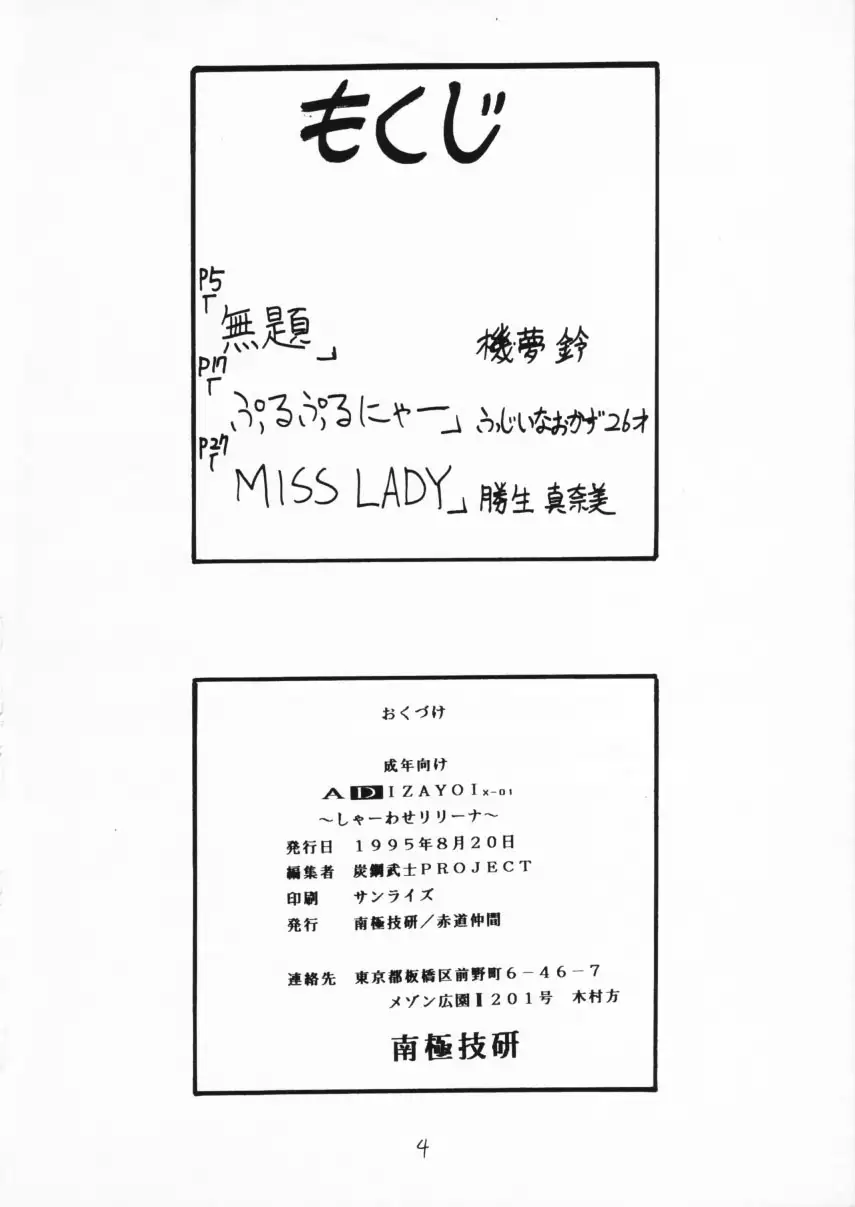 もくじ
P5
「無題」 機夢 鈴
P17
「ぷるぷるにゃー」 ふっじいなおかず26才
P27
「MISS LADY」 勝生 真奈美
おくづけ
成年向け
AD IZAYOI X-01
～しゃーわせリリーナ～
発行日 1995年8月20日
編集者 炭鋼武士PROJECT
印刷 サンライズ
発行 南極技研／赤道仲間
連絡先 東京都板橋区前野町6－46－7
メゾン広園Ⅱ201号 木村方
南極技研
4